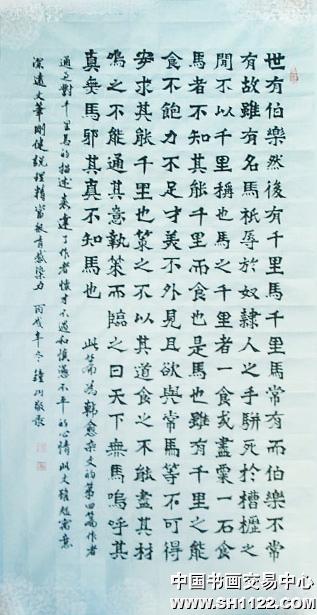 世有伯樂然後有千里馬千里馬常有而伯樂不常
有故雖有名馬祇辱於奴隸人之手駢死於槽櫪之
間不以千里稱也馬之千里者一食或盡粟一石食
馬者不知其能千里而食也是馬也雖有千里之能
食不飽力不足才美不外見且欲與常馬等不可得
安求其能千里也策之不以其道食之不能盡其材
鳴之不能通其意執策而臨之曰天下無馬嗚呼其
真無馬邪其真不知馬也 此篇為韓愈雜文的第四篇作者
通過對千里馬的描述表達了作者懷才不遇和憤懣不平的心情此文寓意
深遠文筆剛健説理精當極有感染力 丙戌年冬鐘川敬录
中国书画交易中心
www.SH1122.com